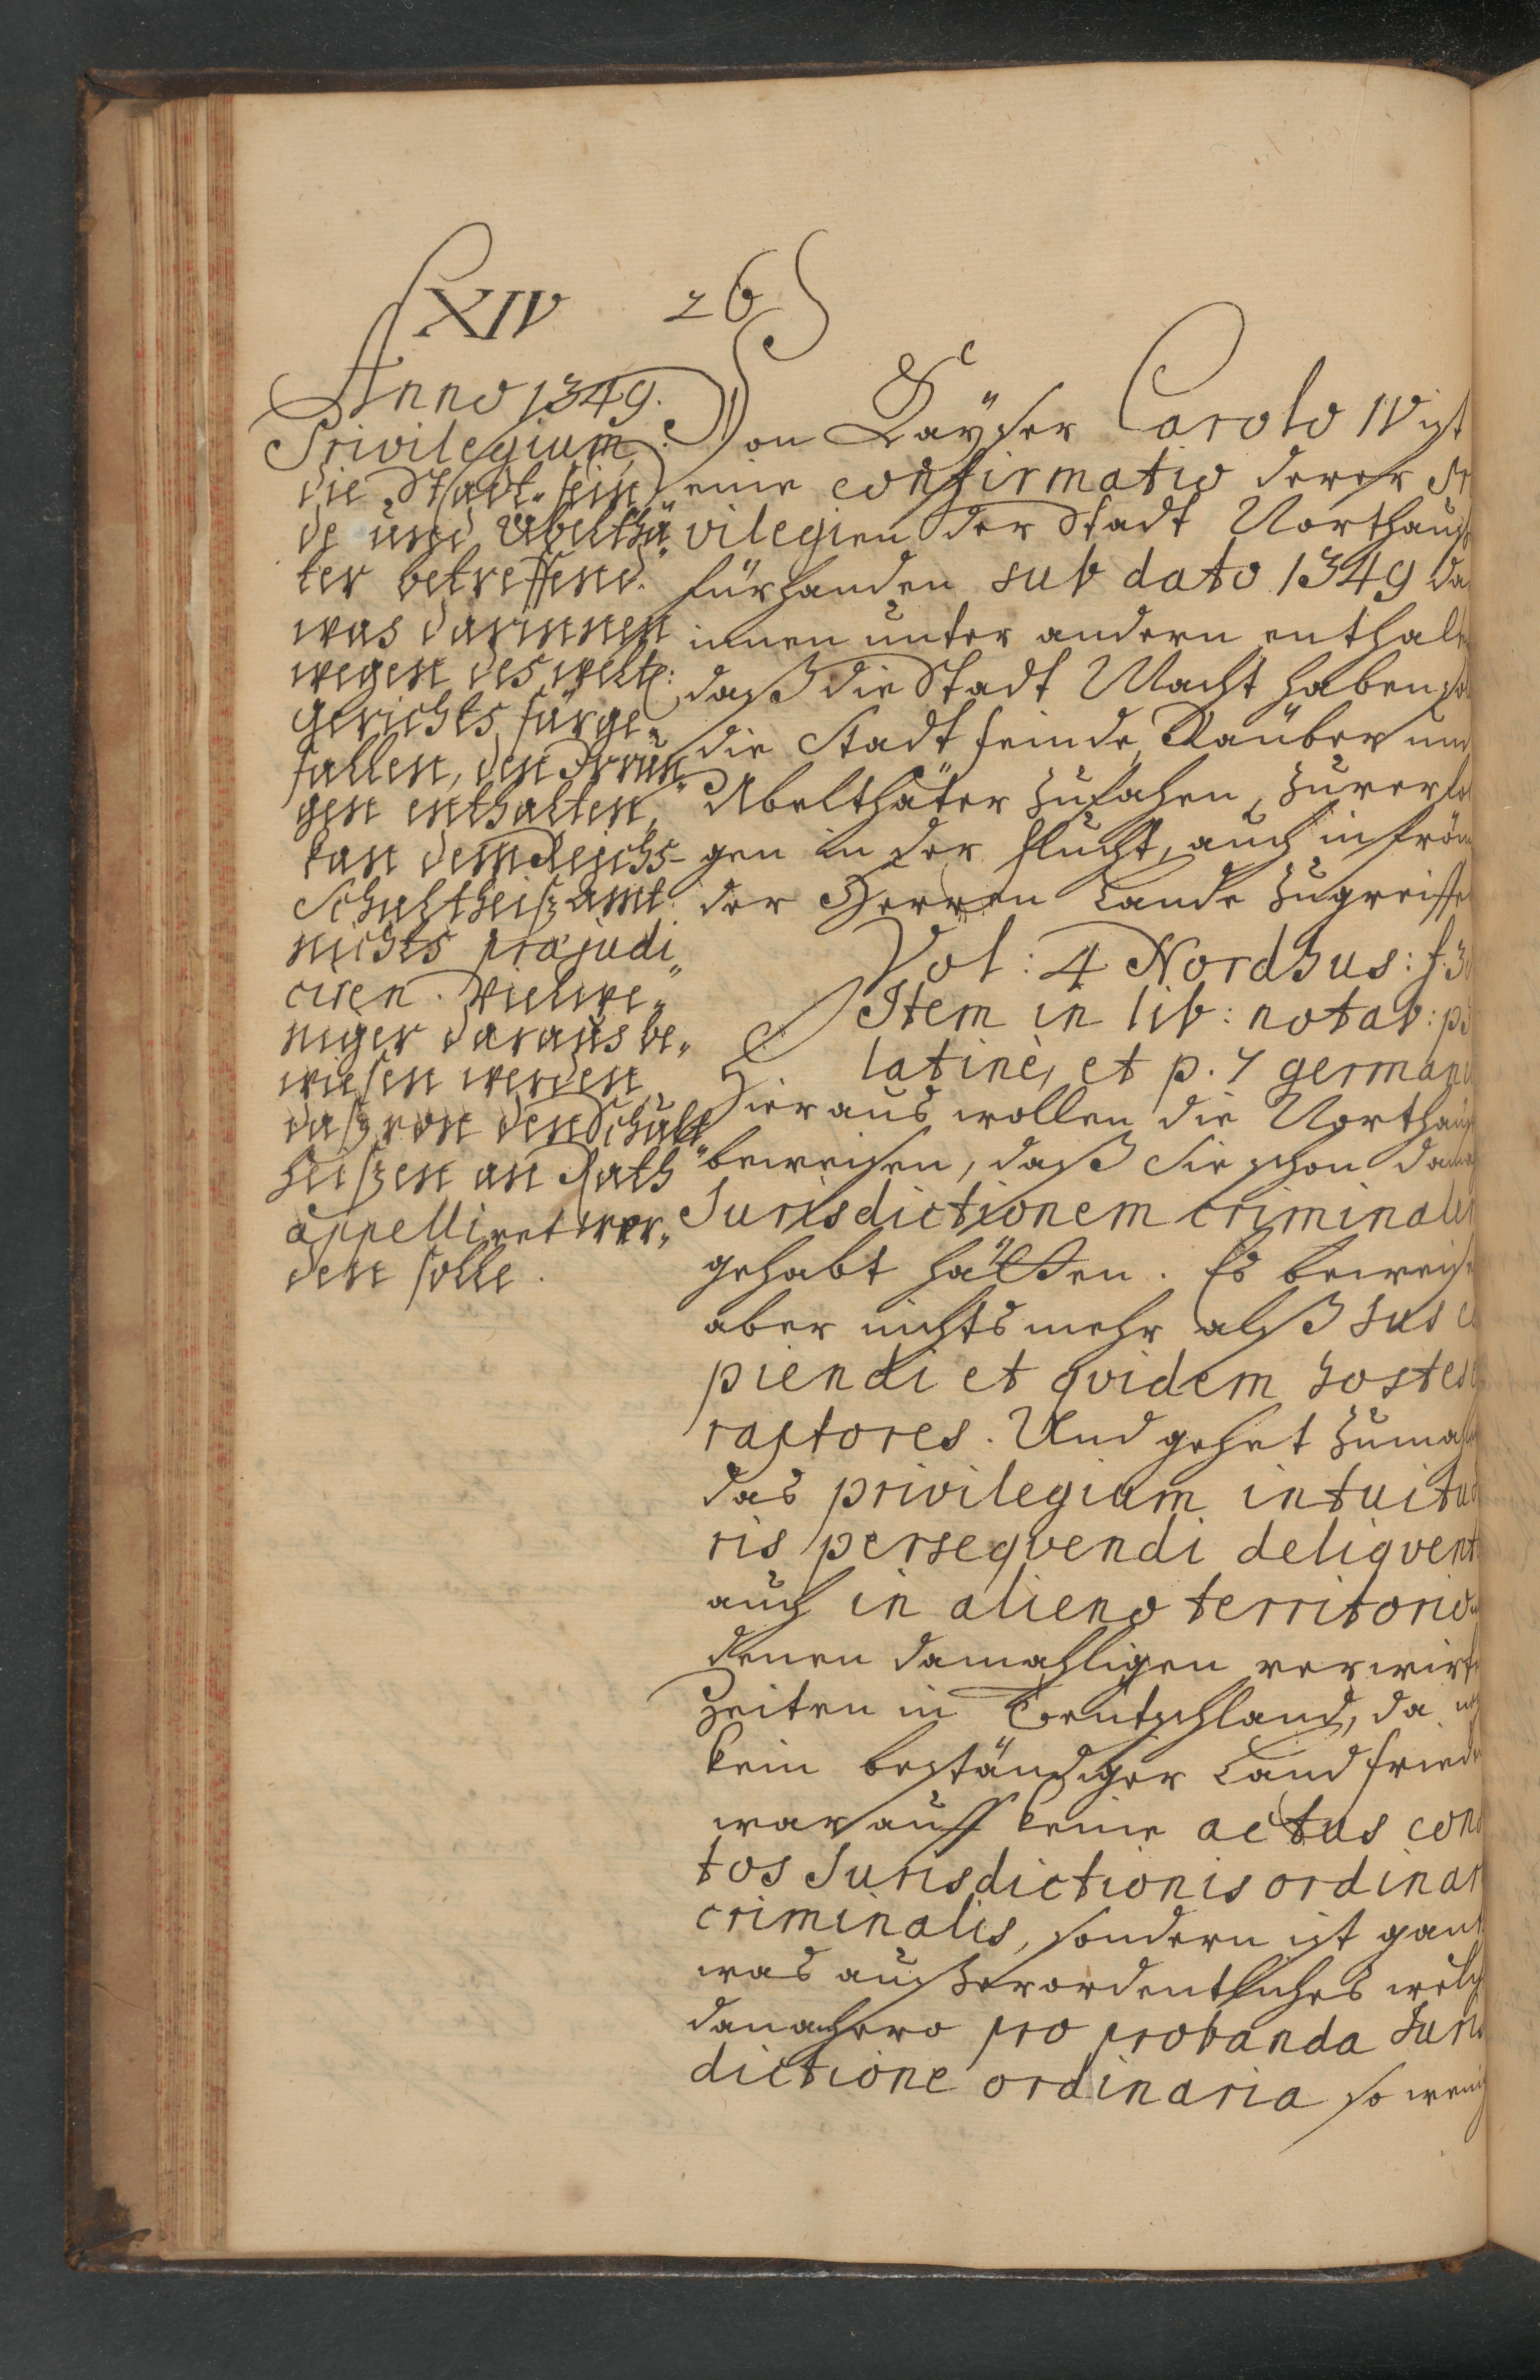 XIV 26
Anno 1349.
Privilegium,
die Stadt-fein
de und Übelthä„
ter betreffend.
was darinnen
wegen des weltl:
gerichts fürge„
fallen, den Irrun„
gen enthalten,
kan dem Reichs-
Schultheisz amt
nichts præjudi„
ciren. Vielwe„
niger daraus be„
wiesen werden
dasz von den Schult„
heiszen an Rath
appelliret wer„
den solle.
Von Kayser Carolo IV ist
eine confirmatio derer Pr
vilegien der Stadt Northauß
fürhanden sub dato 1349 da
innen unter andern enthalten
daß die Stadt Macht haben sol
die Stadt feinde, Räuber und
Übelthäter zufahen, zuverfol
gen in der flucht, auch in fröm
der Herren Lande zugreiffen
Vol: 4 Nordhus: f. 30
Item in lib: notab: p3
latinè, et p. 7 germani
Hieraus wollen die Northäuß
beweisen, daß sie schon dama
Jurisdictionem criminalem
gehabt hätten. Es beweise
aber nichts mehr alß Jus ca
piendi et qvidem hostes
raptores. Und gehet zumahl
das privilegium intuitu
ris perseqvendi deliqvent
auch in alieno territorio
denen damahligen verwirte
Zeiten in Teutschland, da
kein beständiger Landfriede
war auff keine actus con
tos Jurisdictionis ordinar
criminalis, sondern ist gantz
was außerordentliches welch
danahero pro probanda Juris
dictione ordinaria so wenig